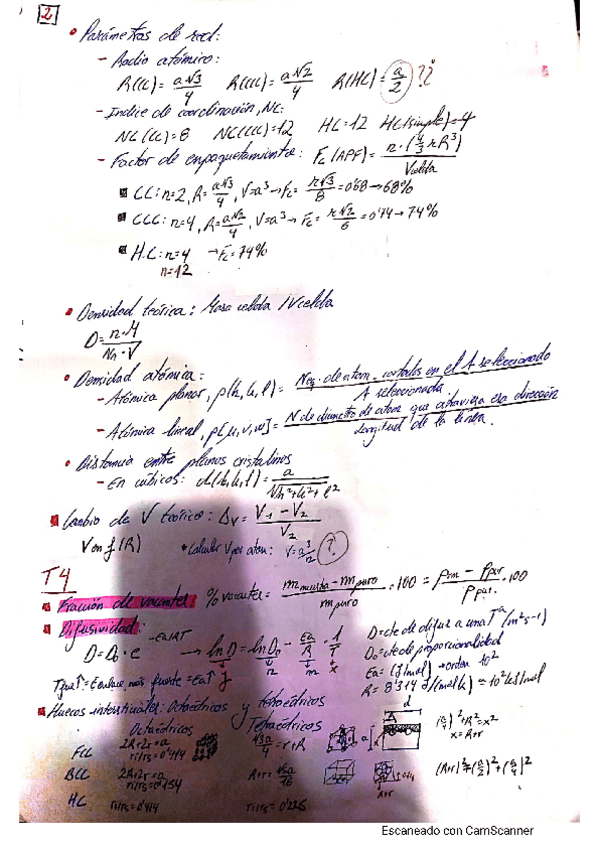 2
• Parámetros de red:
- Radio atómico:
R(CC) = a√3/4 R(CCC) = a√2/4 R(HC) = a/2 ??
- Indice de coordinación, NC:
NC(CC)=8 NC(CCC)=12 HC=12 HC(simple)=4
- Factor de empaquetamiento: Fc(APF) = n·(4/3 π R³)/Vcelda
CC: n=2, R=a√3/4, V=a³→Fc= π√3/8 = 0'68→68%
CCC: n=4, R=a√2/4, V=a³→Fc= π√2/6 = 0'74→74%
H.C: n=4 →Fc=74%
n=12
• Densidad teórica: Masa celda /Vcelda
D= n·M/NA·V
• Densidad atómica:
- Atómica planar, ρ(h,k,l) = de atom. contados en el A seleccionado/A seleccionada
- Atómica lineal, ρ[u,v,w] = N de diametro de atom que atraviesa esa dirección/Longitud de la linea.
• Distancia entre planos cristalinos
- En cúbicos: d(h,k,l) = a/√h²+k²+l²
Cambio de V teórico: ΔV = V1 - V2/V2
V en f(R) *Calcular V por atom: V=a³/n ?
T4
Fracción de vacantes: % vacantes = m muestra - m puro/m puro ·100 = ·100
Difusividad:
D=D0·e -Ea/RT → lnD = lnD0 - Ea/R · 1/T
D=cte de difus a una Tª (m²s-1)
D0=cte de proporcionalidad
Ea= (J/mol) →orden 10²
R= 8'314 J/(mol k)
Tfus↑=Eenlace más fuerte =Ea↑
Huecos intersticiales: Octaédricos y tetraédricos
Octaédricos Tetraédricos
FCC 2R+2r=a
BCC 2R+2r=a
r/rs=0'154
HC r/rs=0'414 r/rs=0'225
x=R+r
(R+r)²=(a/2)²+(a/4)²
Escaneado con CamScanner